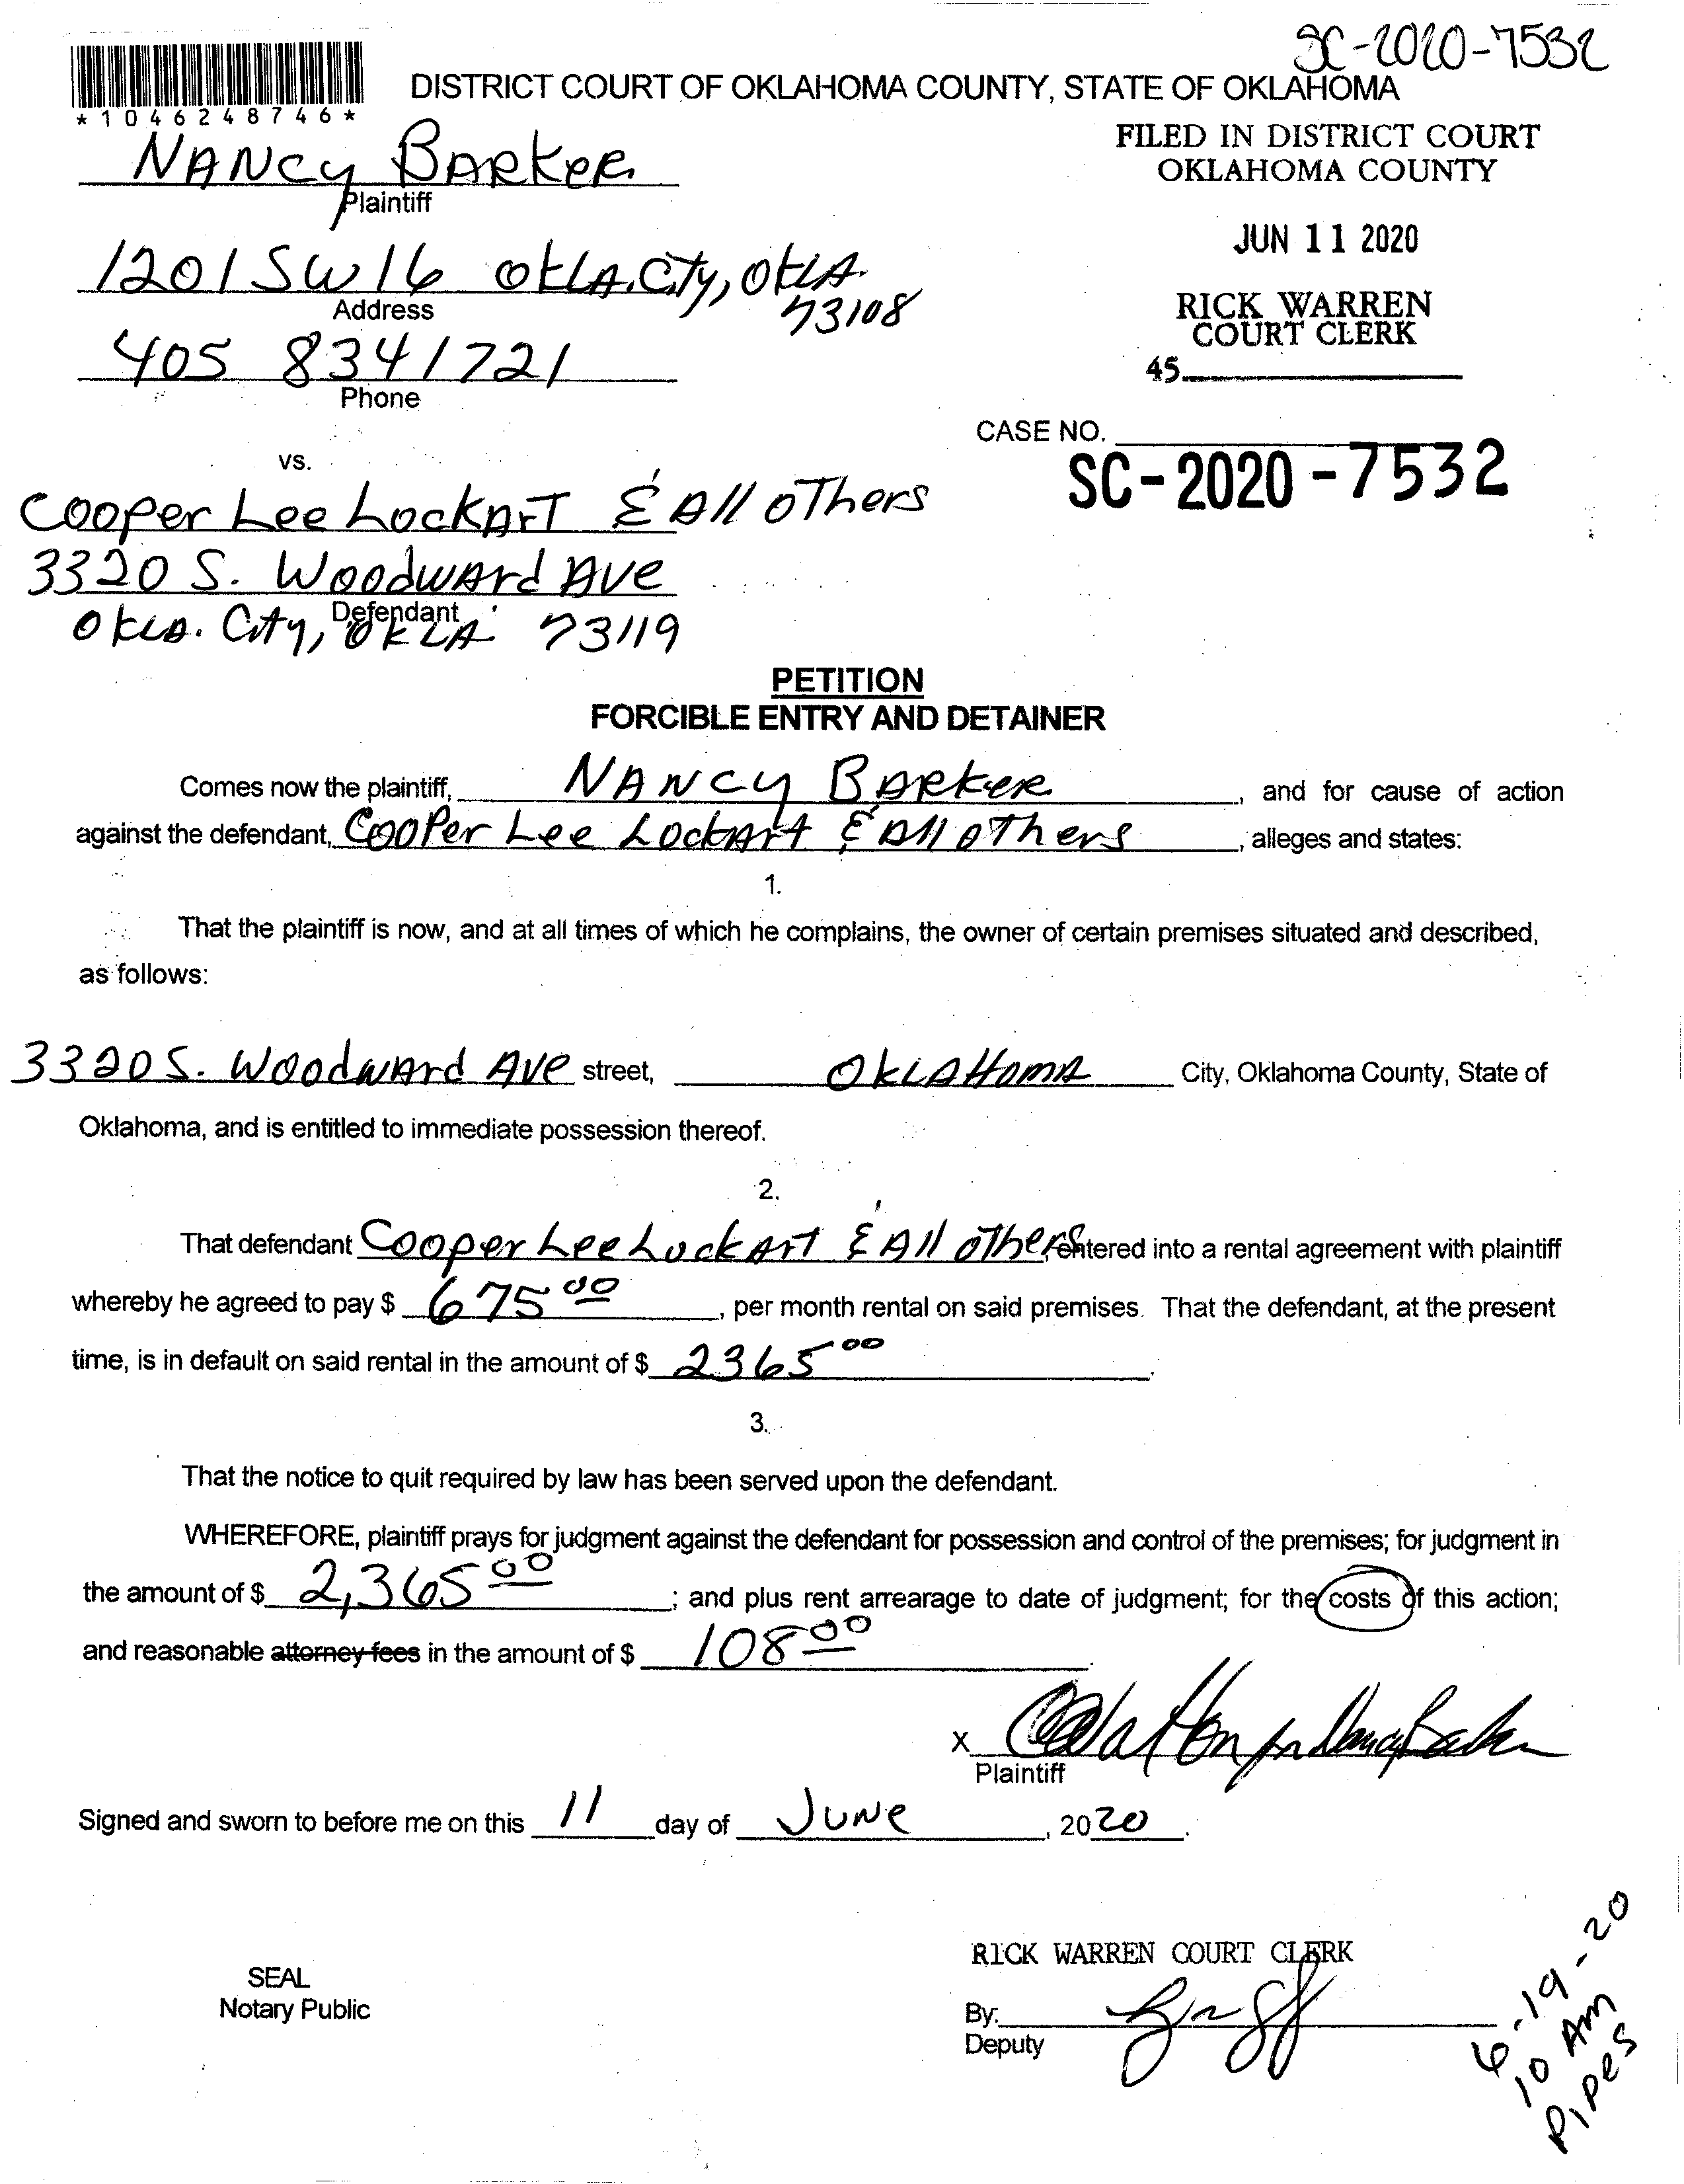 SC-2020-7532
*1046248746*
DISTRICT COURT OF OKLAHOMA COUNTY, STATE OF OKLAHOMA
NANCY BARKER
Plaintiff
FILED IN DISTRICT COURT
OKLAHOMA COUNTY
JUN 11 2020
1201 SW 16 OKLA. City, OKLA.
73108
Address
RICK WARREN
COURT CLERK
405 834 1721
Phone
45
CASE NO.
SC-2020-7532
vs.
Cooper Lee LockArT & All oThers
3320 S. WoodwArd Ave
Okla. City, OKLA 73119
Defendant
PETITION
FORCIBLE ENTRY AND DETAINER
Comes now the plaintiff, NANCY BARKER, and for cause of action
against the defendant, Cooper Lee LockArt & All oThers, alleges and states:
1.
That the plaintiff is now, and at all times of which he complains, the owner of certain premises situated and described,
as follows:
3320 S. WoodwArd Ave street, OKLAHomA City, Oklahoma County, State of
Oklahoma, and is entitled to immediate possession thereof.
2.
That defendant Cooper Lee LockArT & All oThers entered into a rental agreement with plaintiff
whereby he agreed to pay $ 675 00, per month rental on said premises. That the defendant, at the present
time, is in default on said rental in the amount of $ 2365 00.
3.
That the notice to quit required by law has been served upon the defendant.
WHEREFORE, plaintiff prays for judgment against the defendant for possession and control of the premises; for judgment in
the amount of $ 2,365 00; and plus rent arrearage to date of judgment; for the costs of this action;
and reasonable attorney fees in the amount of $ 108 00.
X for Nancy Barker
Plaintiff
Signed and sworn to before me on this 11 day of JUNe, 2020.
RICK WARREN COURT CLERK
SEAL
Notary Public
By:
Deputy
6-19-20
10 Am
Pipes